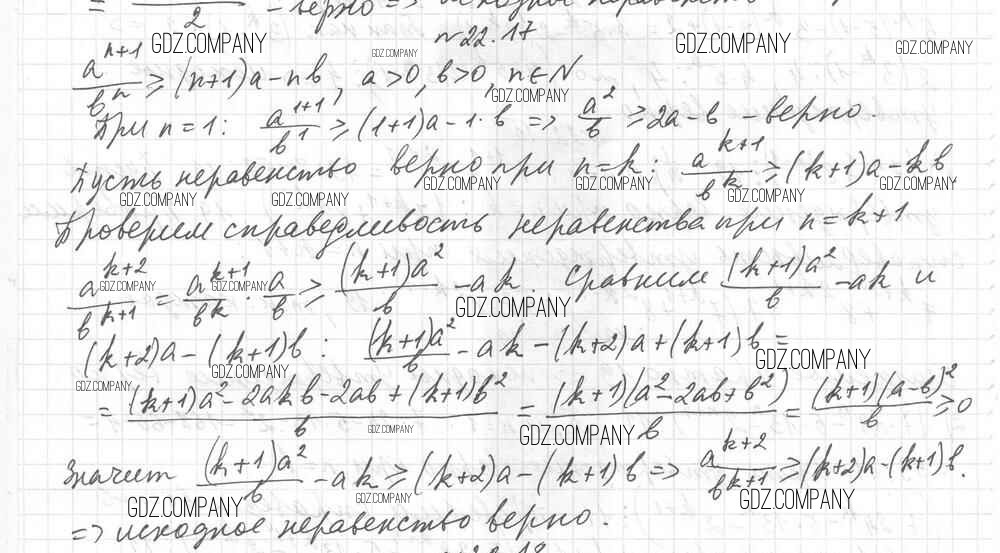 = 2 - верно => исходное неравенство
GDZ.COMPANY GDZ.COMPANY №22.17 GDZ.COMPANY GDZ.COMPANY
a^(n+1)/b^n ≥ (n+1)a - nb, a>0, b>0, n∈N
GDZ.COMPANY
При n=1: a^(1+1)/b^1 ≥ (1+1)a - 1·b => a²/b ≥ 2a - b - верно.
Пусть неравенство верно при n=k: a^(k+1)/b^k ≥ (k+1)a - kb
GDZ.COMPANY GDZ.COMPANY GDZ.COMPANY GDZ.COMPANY GDZ.COMPANY GDZ.COMPANY
Проверим справедливость неравенства при n=k+1
a^(k+2)/b^(k+1) = a^(k+1)/b^k · a/b ≥ (k+1)a²/b - ak. Сравним (k+1)a²/b - ak и
GDZ.COMPANY GDZ.COMPANY GDZ.COMPANY
(k+2)a - (k+1)b : (k+1)a²/b - ak - (k+2)a + (k+1)b =
GDZ.COMPANY GDZ.COMPANY GDZ.COMPANY
= ((k+1)a² - 2akb - 2ab + (k+1)b²)/b = (k+1)(a² - 2ab + b²)/b = (k+1)(a-b)²/b ≥ 0
GDZ.COMPANY GDZ.COMPANY
Значит (k+1)a²/b - ak ≥ (k+2)a - (k+1)b => a^(k+2)/b^(k+1) ≥ (k+2)a - (k+1)b.
GDZ.COMPANY GDZ.COMPANY GDZ.COMPANY
=> исходное неравенство верно.